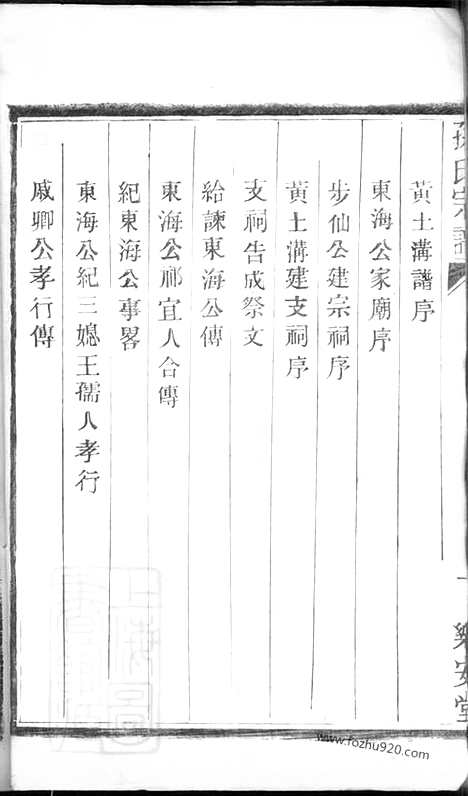 孫氏宗譜
黃土溝譜序
東海公家廟序
步仙公建宗祠序
黃土溝建支祠序
支祠告成祭文
給諫東海公傳
東海公祁宜人合傳
紀東海公事畧
東海公紀三媳王孺人孝行
戚卿公孝行傳
一
樂安堂
www.fozhu920.com